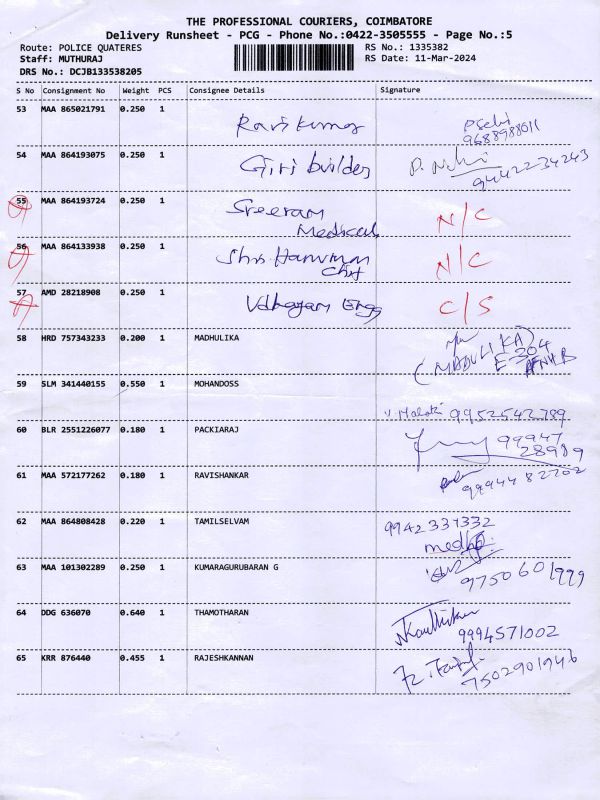 THE PROFESSIONAL COURIERS, COIMBATORE
Delivery Runsheet - PCG - Phone No.:0422-3505555 - Page No.:5
Route: POLICE QUATERES RS No.: 1335382
Staff: MUTHURAJ RS Date: 11-Mar-2024
DRS No.: DCJB133538205
S No Consignment No Weight PCS Consignee Details Signature
53 MAA 865021791 0.250 1 Ravi Kumar
9688988011
54 MAA 864193075 0.250 1 Giri builder
9442234243
55 MAA 864193724 0.250 1 Sreeram Medical N/C
56 MAA 864133938 0.250 1 Shri Hanuman Chit N/C
57 AMD 28218908 0.250 1 Udhayam Engg C/S
58 HRD 757343233 0.200 1 MADHULIKA
(MADULIKA)
E-304
59 SLM 341440155 0.550 1 MOHANDOSS
V. Malathi 9952542789
60 BLR 2551226077 0.180 1 PACKIARAJ
99947
28989
61 MAA 572177262 0.180 1 RAVISHANKAR
9994482702
62 MAA 864808428 0.220 1 TAMILSELVAM
9942337332
63 MAA 101302289 0.250 1 KUMARAGURUBARAN G
9750601999
64 DDG 636070 0.640 1 THAMOTHARAN
9994571002
65 KRR 876440 0.455 1 RAJESHKANNAN
7502901946